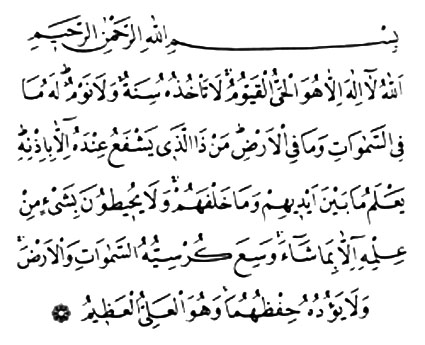 بِسْمِ اللهِ الرَّحْمٰنِ الرَّحِيمِ
اَللهُ لَٓا اِلٰهَ اِلَّا هُوَ الْحَيُّ الْقَيُّومُۚ لَا تَأْخُذُهُ سِنَةٌ وَلَا نَوْمٌۜ لَهُ مَا
فِي السَّمٰوَاتِ وَمَا فِي الْاَرْضِۜ مَنْ ذَا الَّذ۪ي يَشْفَعُ عِنْدَهُٓ اِلَّا بِاِذْنِه۪ۜ
يَعْلَمُ مَا بَيْنَ اَيْد۪يهِمْ وَمَا خَلْفَهُمْۚ وَلَا يُح۪يطُونَ بِشَيْءٍ مِنْ
عِلْمِه۪ٓ اِلَّا بِمَا شَٓاءَۚ وَسِعَ كُرْسِيُّهُ السَّمٰوَاتِ وَالْاَرْضَۚ
وَلَا يَؤُ۫دُهُ حِفْظُهُمَاۚ وَهُوَ الْعَلِيُّ الْعَظ۪يمُ